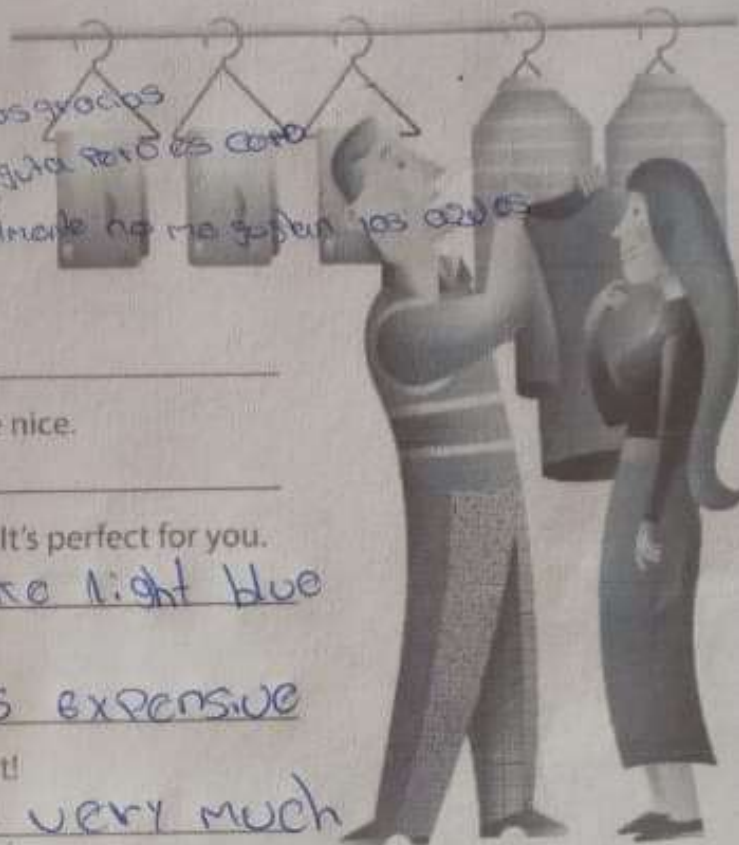 os gracias
gusta pero es caro
lmente no me gustan los azules
e nice.
It's perfect for you.
ke light blue
s expensive
t!
very much